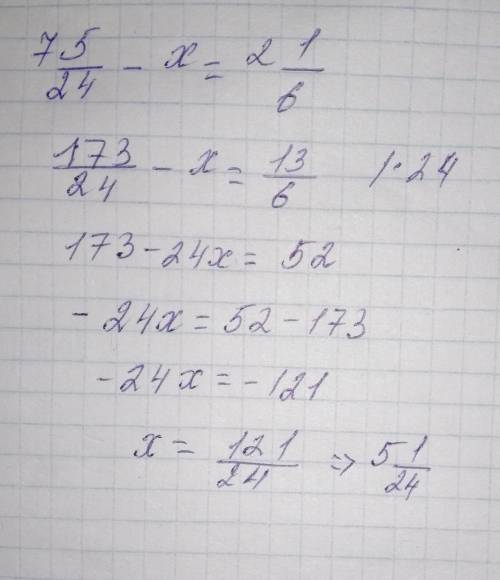 7 5/24 - x = 2 1/6
173/24 - x = 13/6 | · 24
173 - 24x = 52
- 24x = 52 - 173
- 24x = - 121
x = 121/24 => 5 1/24